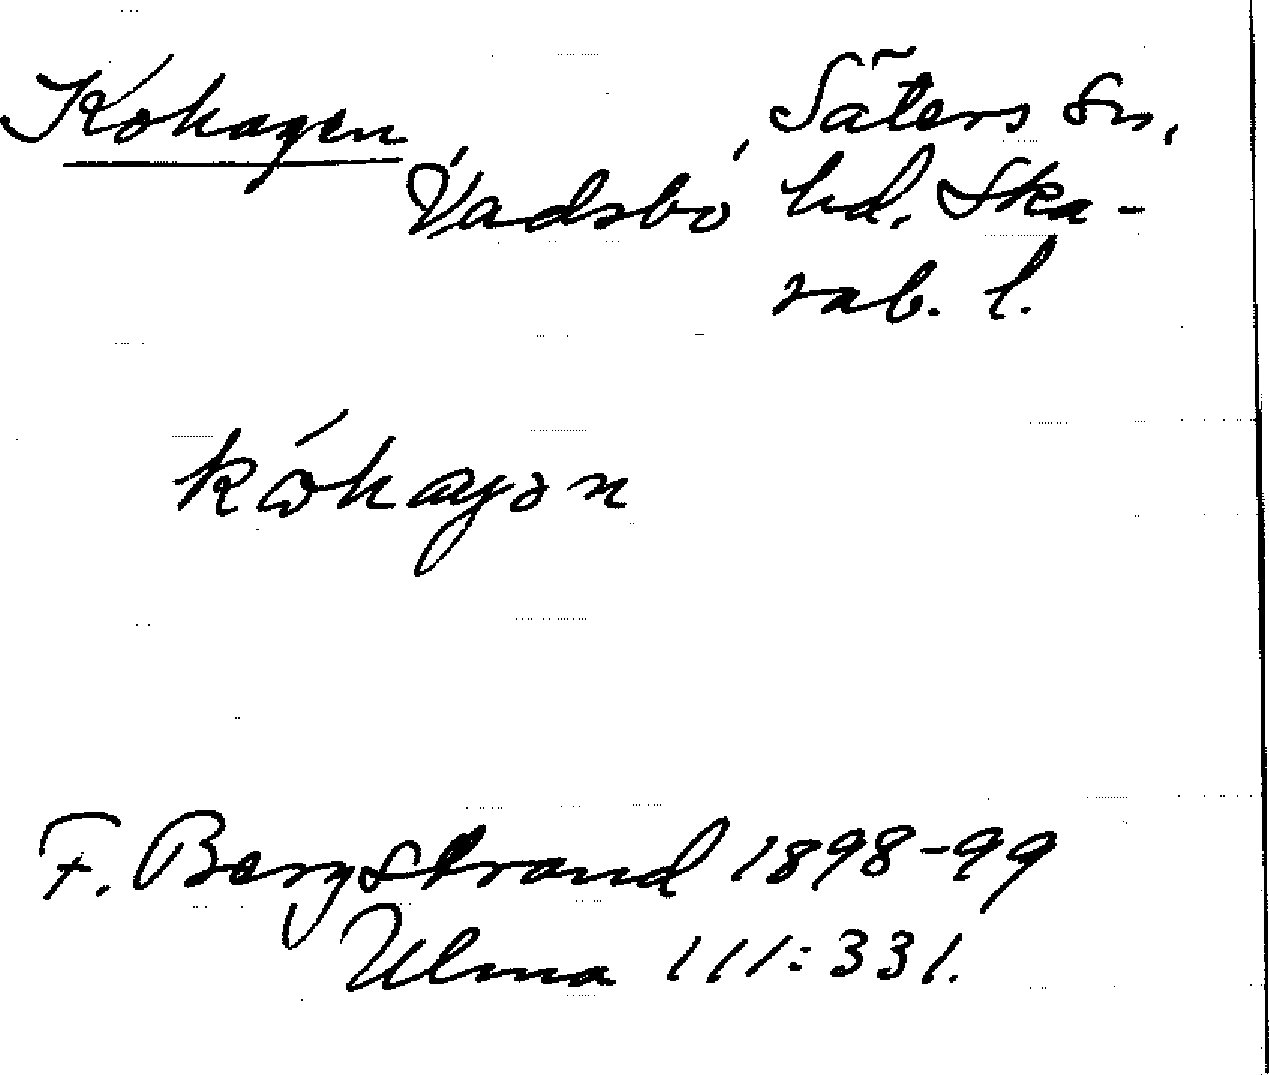 Kohagen Säters sn,
Vadsbo hd, Ska-
rab. l.
kóhagən
F. Bergstrand 1898-99
Ulma 111:331.